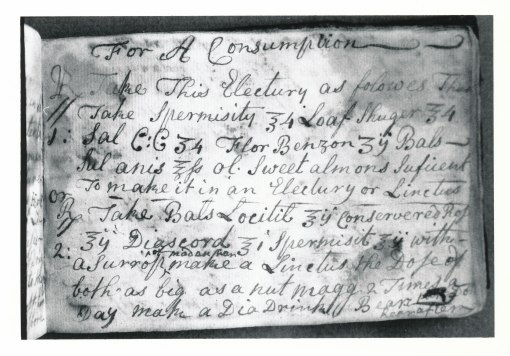 For A Consumption
℞ Take This Electury as folowes Thus
// Take Spermisity ʒ4 Loaf Shuger ʒ4
1: Sal C:C ʒ4 Flor Benzon ʒij Bals
Sul anis ʒſs ol Sweet almons Suficent
To make it in an Electury or Linctus
or
℞ Take Bals Locitil ʒij Conservered Ros
2: ʒij Diascord ʒi Spermisit ʒij with
a Surrop make a Linctus the Dose of
both as big as a nut magg 2 Times a
Day make a Dia Drink // Bean for
hearafter